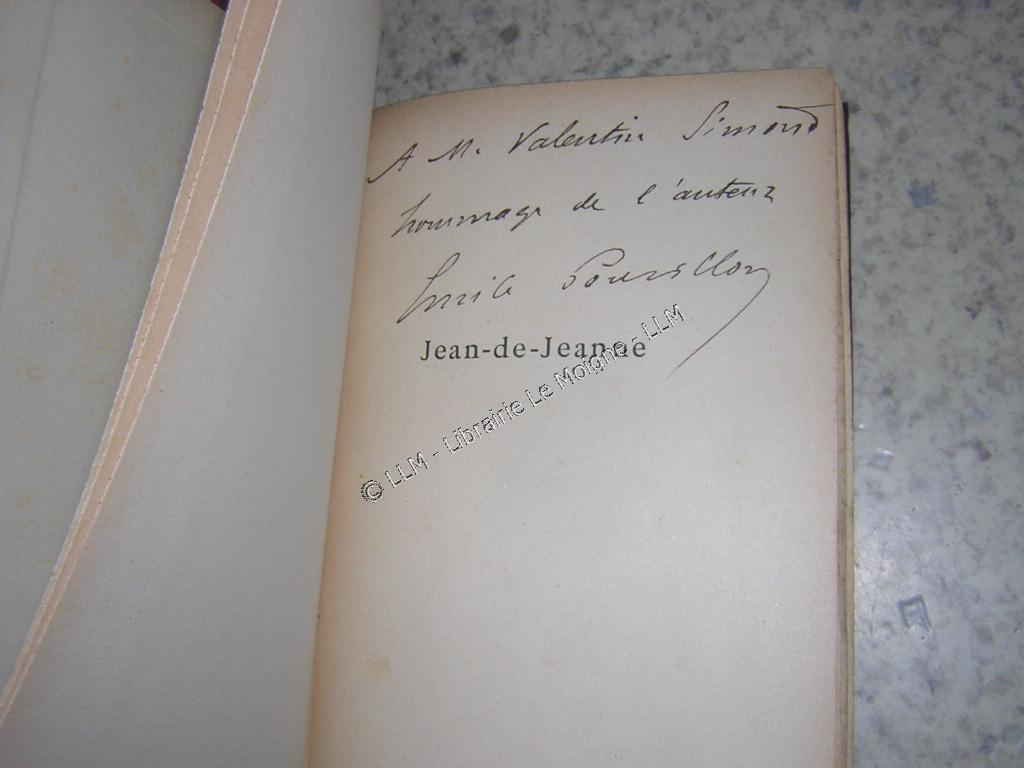 A M. Valentin Simond
hommage de l'auteur
Emile Pouvillon
Jean-de-Jeanne
© LLM - Librairie Le Moigne - LLM